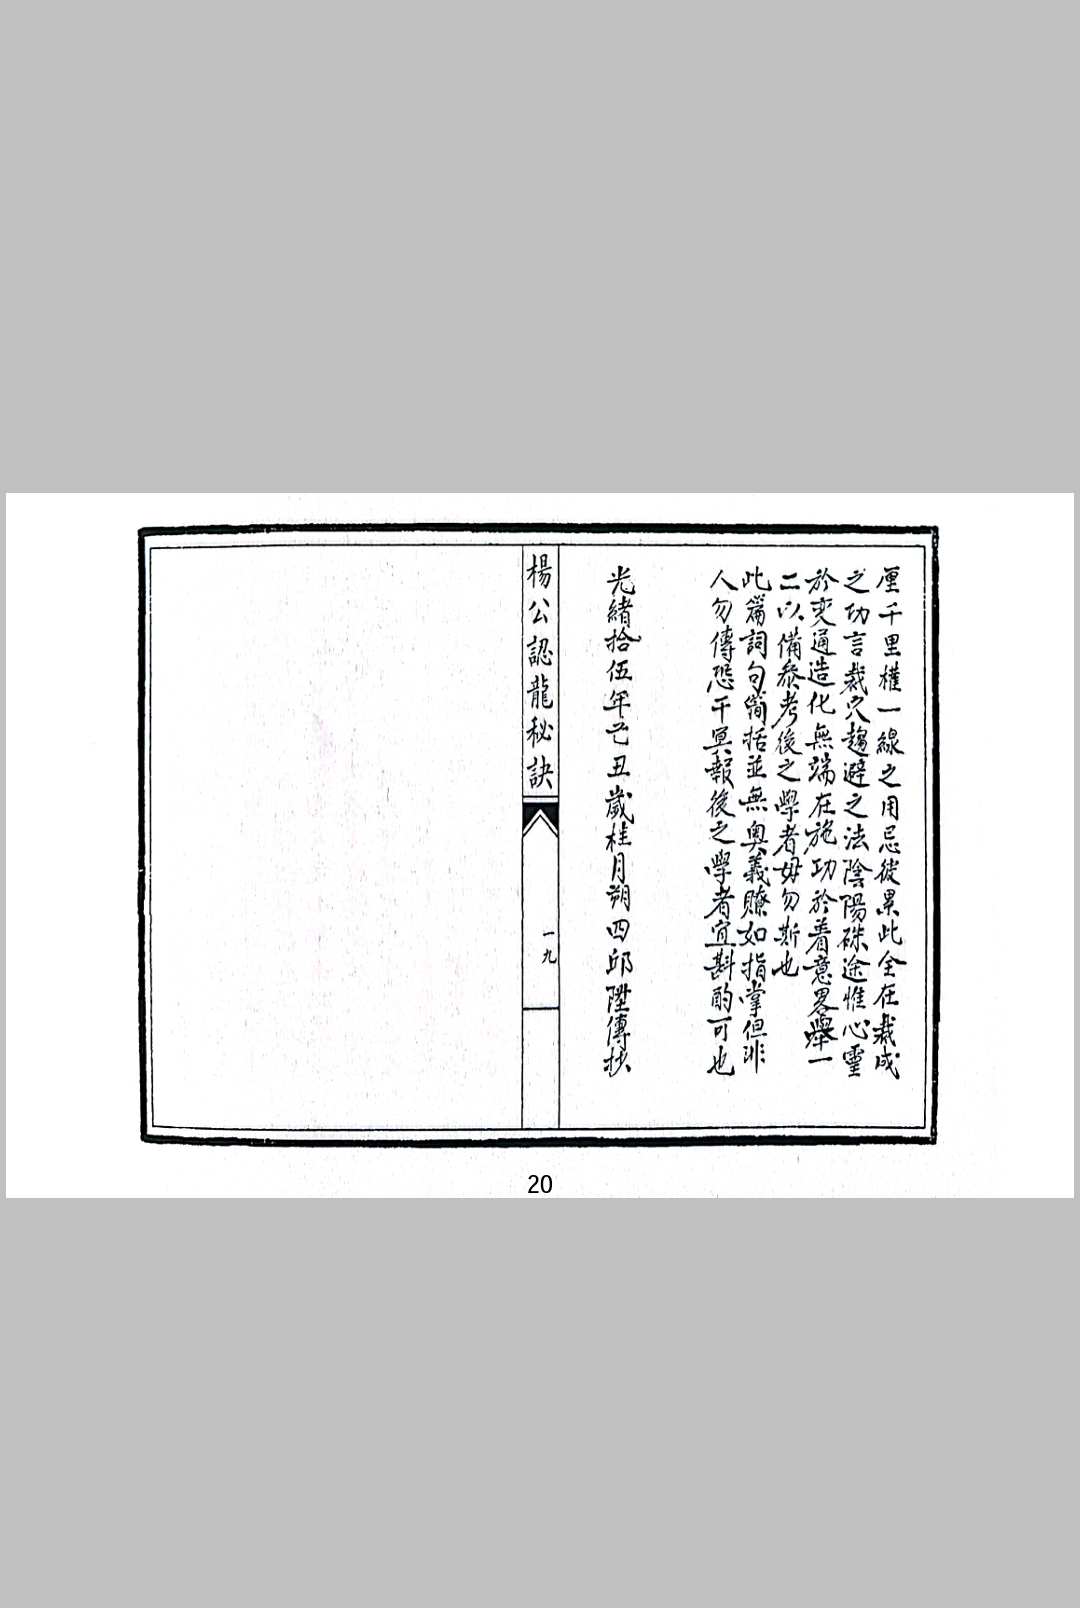 厘千里權一線之用忌從累此全在裁成
之功言裁穴趨避之法陰陽殊途惟心靈
於変通造化無端在施功於着意畧舉一
二以備叅考後之學者毋勿斯也
此篇詞句簡括並無奧義瞭如指掌但非
人勿傳恐干冥報後之學者宜斟酌可也
光緒拾伍年己丑歲桂月朔四邱陞傳抄
楊公認龍秘訣
一九
20